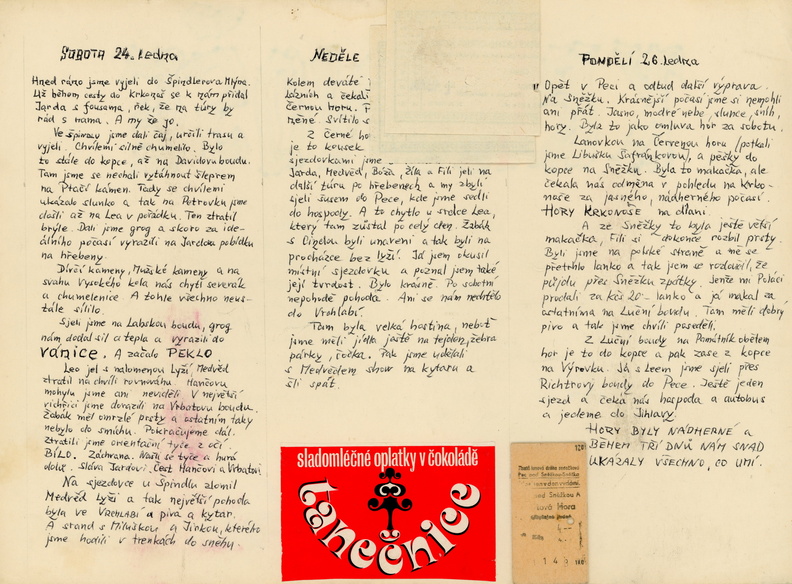 SOBOTA 24. ledna
Hned ráno jsme vyjeli do Špindlerova Mlýna.
Už během cesty do Krkonoš se k nám přidal
Jarda s fousama, řek, že na túry by
rád s nama. A my že jo.
Ve Špinsu jsme dali čaj, určili trasu a
vyjeli. Chvílemi silně chumelilo. Bylo
to stále do kopce, až na Davidovu boudu.
Tam jsme se nechali vytáhnout šleprem
na Ptačí kámen. Tady se chvílemi
ukázalo slunko a tak na Petrovku jsme
došli až na Lea v pořádku. Ten ztratil
brýle. Dali jsme grog a skoro za ide-
álního počasí vyrazili na Jardovu pobídku
na hřebeny.
Dívčí kameny, Mužské kameny a na
svahu Vysokého kola nás chytl severák
a chumelenice. A tohle všechno neus-
tále sílilo.
Sjeli jsme na Labskou boudu, grog
nám dodal sil a tepla a vyrazili do
vánice. A začalo PEKLO.
Leo jel s nalomenou lyží, Medvěd
ztratil na chvíli rovnováhu. Hančovu
mohylu jsme ani neviděli. V největší
vichřici jsme dorazili na Vrbatovu boudu.
Žabák měl omrzlé prsty a ostatním taky
nebylo do smíchu. Pokračujeme dál.
Ztratili jsme orientační tyče z očí.
BÍLO. Záchrana. Našli se tyče a hurá
dolů. Sláva Jardovi. Čest Hančovi a Vrbatovi.
Na sjezdovce u Špindlu zlomil
Medvěd lyži a tak největší pohoda
byla ve VRCHLABÍ u piva a kytar.
A srand s Miluškou a Jirkou, kterého
jsme hodili v trenkách do sněhu.
NEDĚLE
Kolem deváté
lázních a čekali
černou horu.
měně. Svítilo s
Z černé ho
je to kousek
sjezdovkami jsme
Jarda, Medvěd, Boža, Žíla a Fili jeli na
další túru po hřebenech a my zbylí
sjeli sušem do Pece, kde jsme sedli
do hospody. A to chytlo u srdce Lea,
který tam zůstal po celý den. Žabák
s Cindou byli unavení a tak byli na
procházce bez lyží. Já jsem okusil
místní sjezdovku a poznal jsem také
její tvrdost. Bylo krásně. Po sobotní
nepohodě pohoda. Ani se nám nechtělo
do Vrchlabí.
Tam byla velká hostina, neboť
jsme měli jídla ještě na týden, žebra
párky, čočka. Pak jsme udělali
s Medvědem show na kytaru a
šli spát.
PONDĚLÍ 26. ledna
Opět v Peci a odtud další výprava.
Na Sněžku. Krásnější počasí jsme si nemohli
ani přát. Jasno, modré nebe, slunce, sníh,
hory. Byla to jako omluva hor za sobotu.
Lanovkou na Červenou horu (potkali
jsme Libušku Šafránkovou), a pěšky do
kopce na Sněžku. Byla to makačka, ale
čekala nás odměna v pohledu na Krko-
noše za jasného, nádherného počasí.
HORY KRKONOŠE na dlani.
A ze Sněžky to byla ještě větší
makačka, Fili si dokonce rozbil prsty.
Byli jsme na polské straně a mě se
přetrhlo lanko a tak jsem se rozloučil, že
půjdu přes Sněžku zpátky. Jenže mi Poláci
prodali za Kčs 20- lanko a já makal za
ostatníma na Luční boudu. Tam měli dobrý
pivo a tak jsme chvíli poseděli.
Z Luční boudy na Památník obětem
hor je to do kopce a pak zase z kopce
na Výrovku. Já s Leem jsme sjeli přes
Richtrovy boudy do Pece. Ještě jeden
sjezd a čeká nás hospoda a autobus
a jedeme do Jihlavy.
HORY BYLY NÁDHERNÉ a
BĚHEM TŘÍ DNŮ NÁM SNAD
UKÁZALY VŠECHNO, CO UMÍ.
sladomléčné oplatky v čokoládě
tanečnice